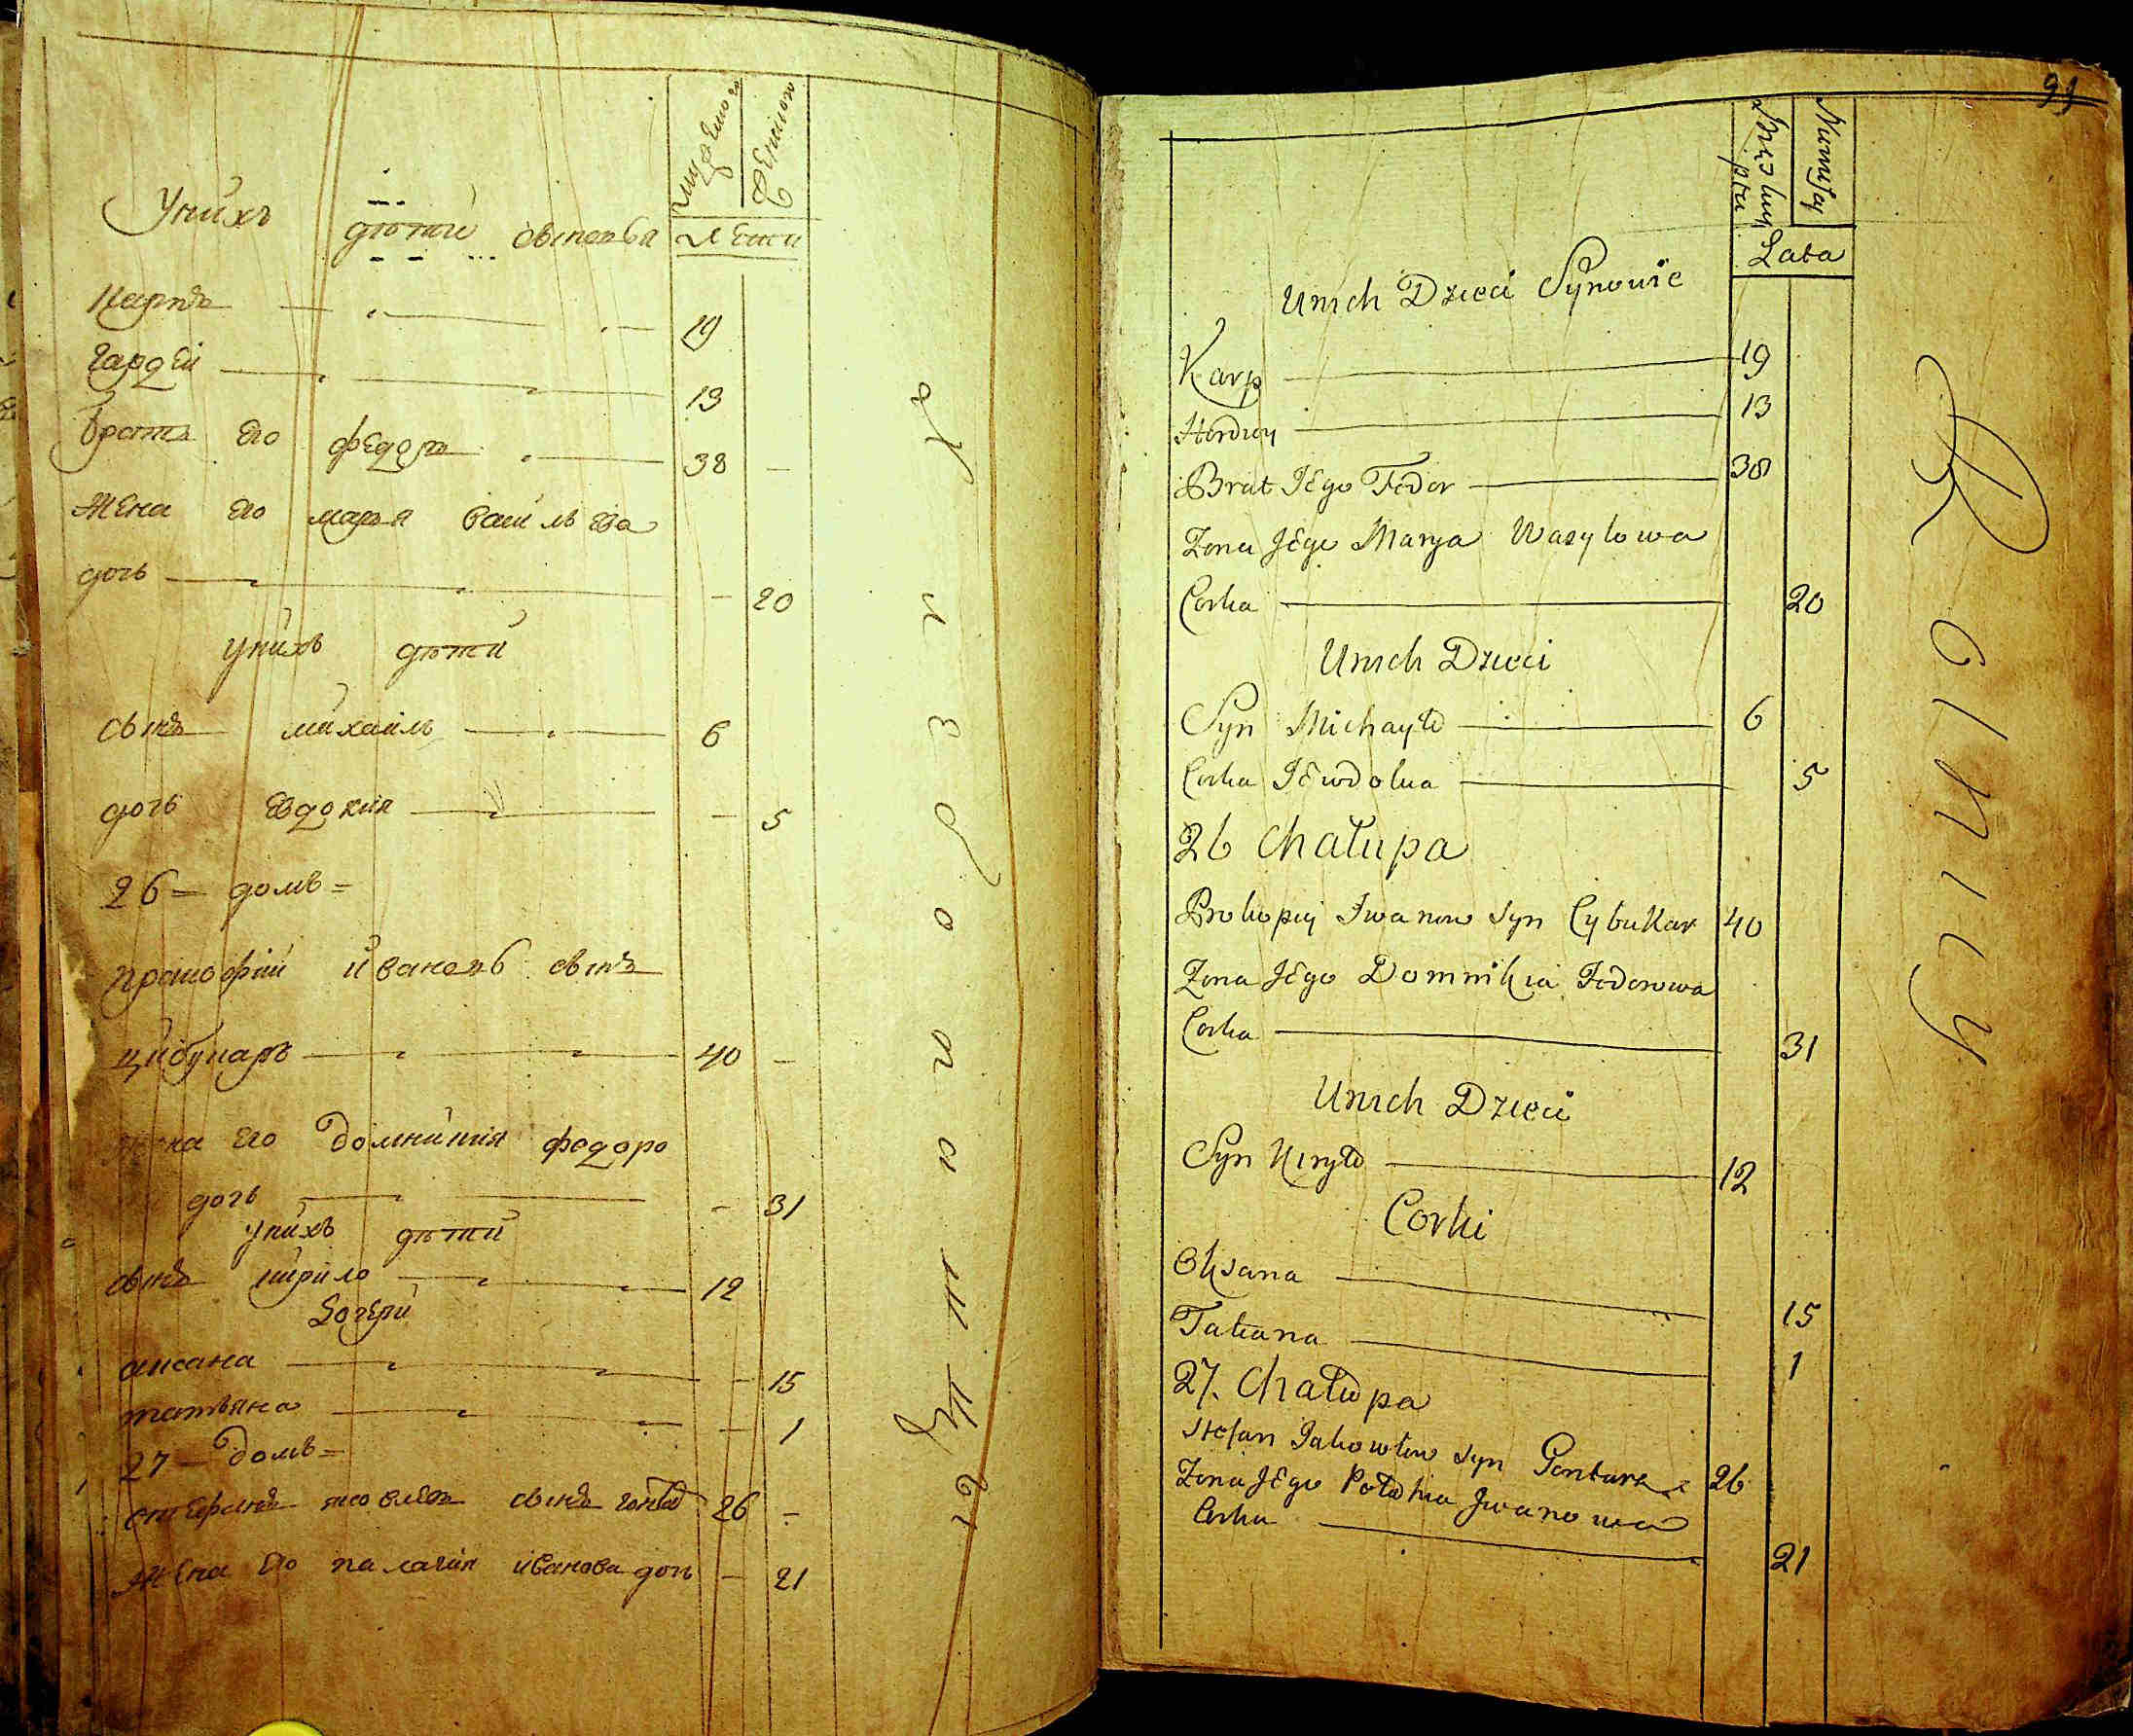 Унихъ дѣти сыновья
мужеска
женска
Лета
Карпъ 19
Гардей 13
братъ его федоръ 38 –
жена его марья василѣва
дочь – 20
Унихъ дѣти
сынъ михаилъ 6
дочь евдокия – 5
26 = домъ =
прокофий ивановъ сынъ
цибукаръ 40 –
жена его домникия федоро
дочь – 31
Унихъ дѣти
сынъ кирило 12
дочери
аксана – 15
татьяна – 1
27 – домъ =
стефанъ яковлевъ сынъ 26 –
жена его палагия иванова дочь – 21
Lata
Unich Dzieci Synowie
Karp 19
Hordiey 13
Brat Jego Fedor 38
Zona Jego Marya Wasylowa
Corka 20
Unich Dzieci
Syn Michayło 6
Corka Jewdokia 5
26 Chałupa
Prokopiy Iwanow Syn Cybulkar 40
Zona Jego Domnikia Fedorowa
Corka 31
Unich Dzieci
Syn Kiryło 12
Corki
Oksana 15
Tatiana 1
27. Chałupa
Stefan Jakowlow Syn Gontarz 26
Zona Jego Połahia Iwanowa
Corka 21
Rolnicy